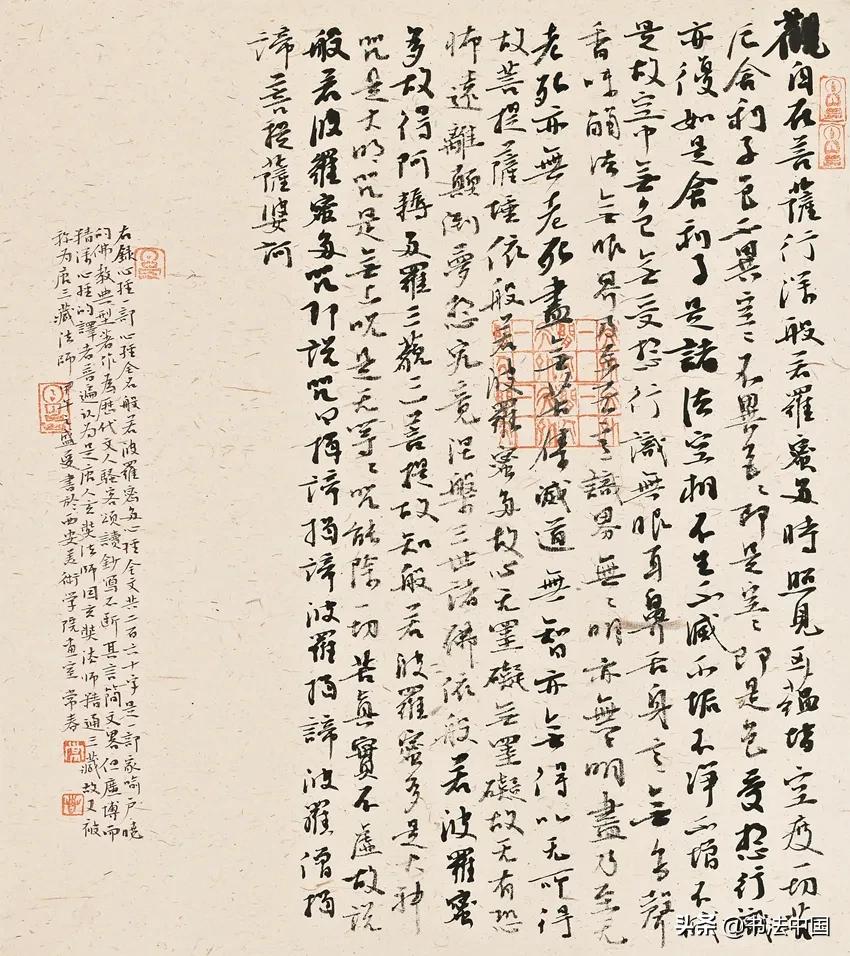 觀自在菩薩行深般若羅蜜多時照見五蘊皆空度一切苦
厄舍利子色不異空〻不異色〻即是空〻即是色受想行識
亦復如是舍利子是諸法空相不生不滅不垢不淨不增不
是故空中無色無受想行識無眼耳鼻舌身意無色聲
香味觸法無眼界乃至無意識界無〻明亦無〻明盡乃至无
老死亦無老死盡無苦集滅道無智亦無得以无所得
故菩提薩埵依般若波羅蜜多故心无罣礙無罣礙故无有恐
怖遠離顛倒夢想究竟涅槃三世諸佛依般若波羅蜜
多故得阿耨多羅三藐三菩提故知般若波羅蜜多是大神
咒是大明咒是無上咒是无等〻咒能除一切苦真實不虛故說
般若波羅蜜多咒即說咒曰揭諦揭諦波羅揭諦波羅僧揭
諦菩提薩婆訶
右錄心經一部心經全名般若波羅蜜多心經全文共二百六十字是一部家喻戶曉
的佛教典型著作為歷代文人騷客頌讀鈔寫不斷其言簡文畧但廣博而
精深心經的譯者普遍认为是唐人玄奘法師因玄奘法師精通三藏故又被
称为唐三藏法師 甲午盛夏書於西安美術学院画室 常春
头条 @书法中国